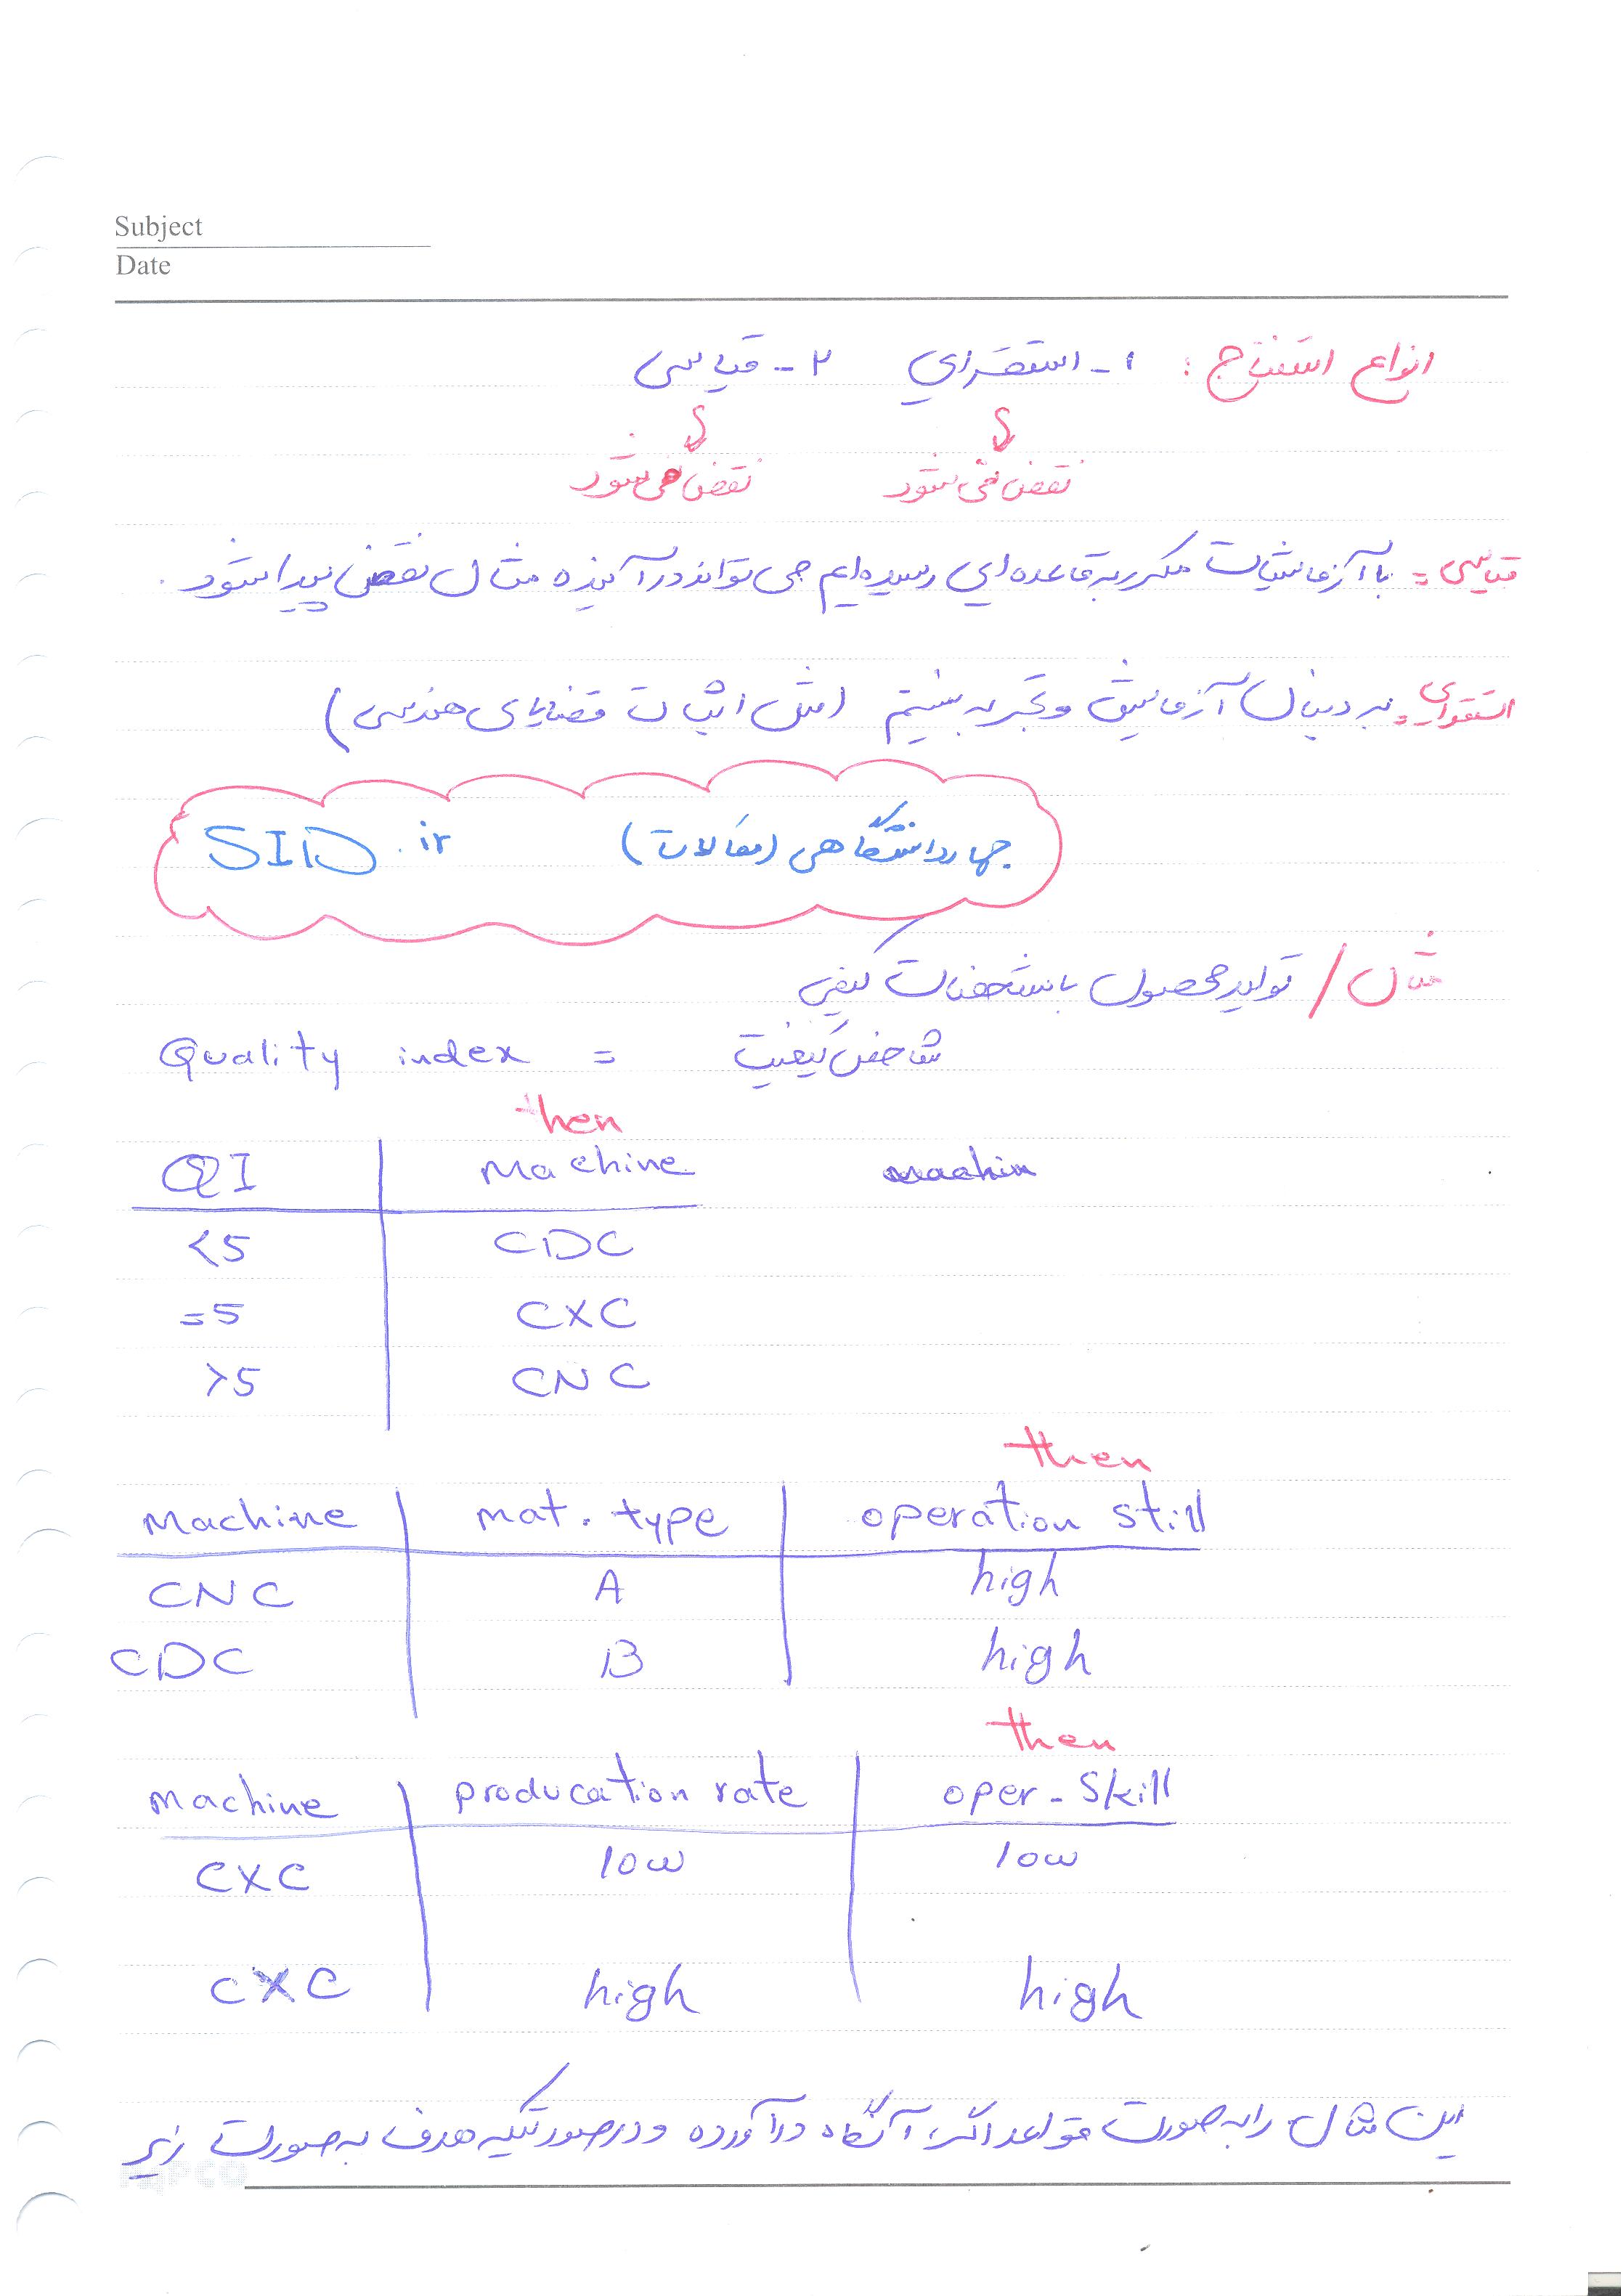 Subject
Date
انواع استنتاج : ۱- استقرایی ۲- قیاسی
نقض نمی شود نقض می شود
قیاسی = با آزمایشات مکرر به قاعده ای رسیده ایم می تواند در آینده مثال نقض پیدا شود .
استقرایی = به دنبال آزمایش و تجربه نیستیم (مثل اثبات قضایای هندسی)
جهاد دانشگاهی (مقالات) SID.ir
مثال / تولید محصول با مشخصات کیفی
Quality index = شاخص کیفیت
then
QI Machine
<5 CDC
=5 CXC
>5 CNC
then
Machine mat. type operation still
CNC A high
CDC B high
then
Machine producation rate oper-Skill
CXC low low
CXC high high
این مثال را به صورت قواعد اگر، آنگاه درآورده و در صورتیکه هدف به صورت زیر
PAPCO